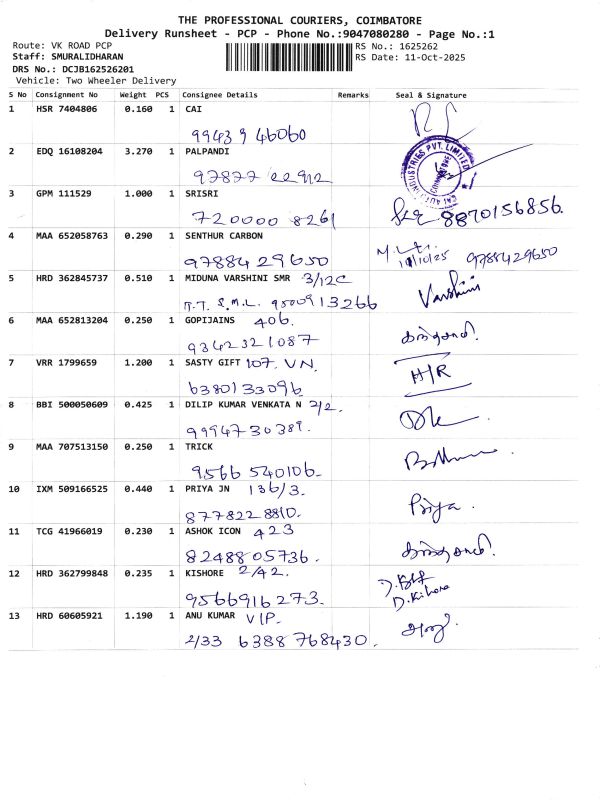 THE PROFESSIONAL COURIERS, COIMBATORE
Delivery Runsheet - PCP - Phone No.:9047080280 - Page No.:1
Route: VK ROAD PCP RS No.: 1625262
Staff: SMURALIDHARAN RS Date: 11-Oct-2025
DRS No.: DCJB162526201
Vehicle: Two Wheeler Delivery
S No Consignment No Weight PCS Consignee Details Remarks Seal & Signature
1 HSR 7404806 0.160 1 CAI
99439 46060
2 EDQ 16108204 3.270 1 PALPANDI
INDUSTRIES PVT. LIMITED
97877 22912
3 GPM 111529 1.000 1 SRISRI
720000 8261 8870156856.
4 MAA 652058763 0.290 1 SENTHUR CARBON
97884 29650 11/10/25 9788429650
5 HRD 362845737 0.510 1 MIDUNA VARSHINI SMR 3/12C
S.M.L. 9500913266 Varshini
6 MAA 652813204 0.250 1 GOPIJAINS 406.
9342321087
7 VRR 1799659 1.200 1 SASTY GIFT 107. VN.
6380133096 H/R
8 BBI 500050609 0.425 1 DILIP KUMAR VENKATA N 2/2.
9994730389.
9 MAA 707513150 0.250 1 TRICK
9566 540106.
10 IXM 509166525 0.440 1 PRIYA JN 136/3.
8778228810. Priya.
11 TCG 41966019 0.230 1 ASHOK ICON 423
8248805736.
12 HRD 362799848 0.235 1 KISHORE 2/42.
9566916273. D.Kishore
13 HRD 60605921 1.190 1 ANU KUMAR VIP.
2/33 6388768430.